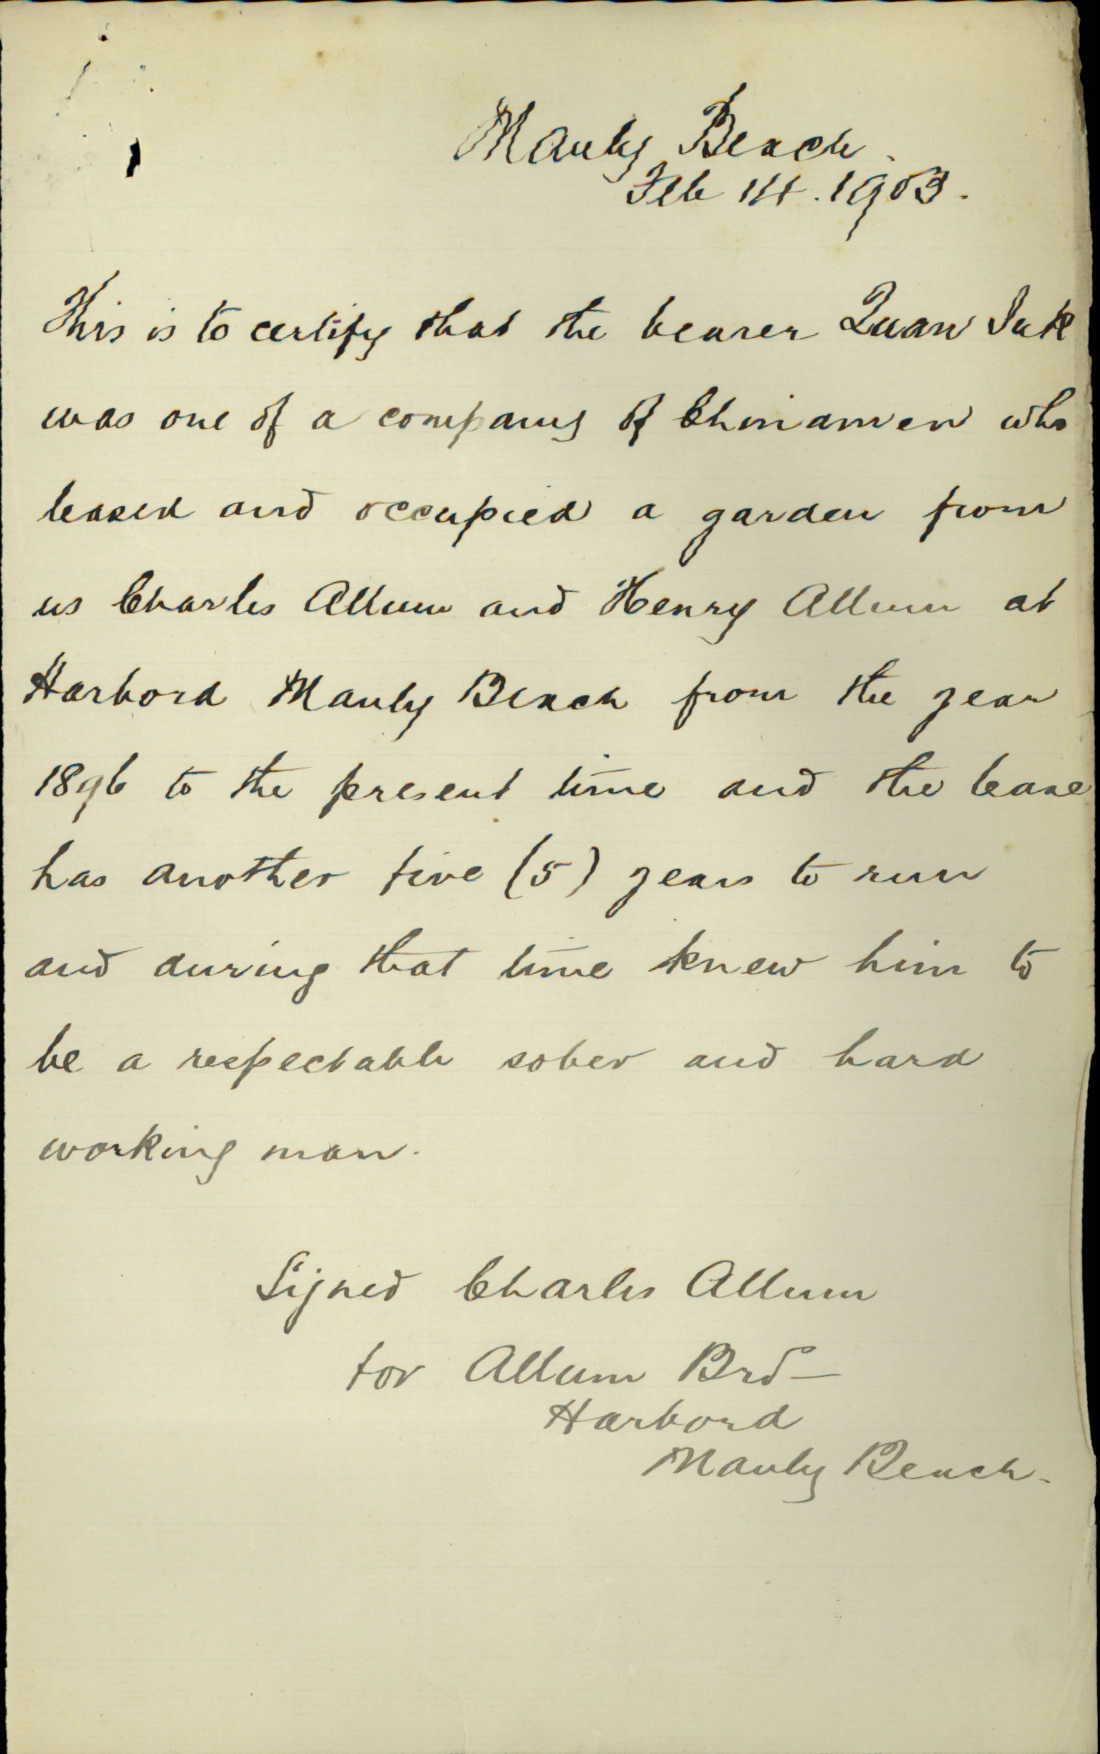 Manly Beach.
Feb 14. 1903.
This is to certify that the bearer Quan
was one of a company of Chinamen who
leased and occupied a garden from
us Charles Allum and Henry Allum at
Harbord Manly Beach from the year
1896 to the present time and the lease
has another five (5) years to run
and during that time knew him to
be a respectable sober and hard
working man.
Signed Charles Allum
for Allum Bros
Harbord
Manly Beach.